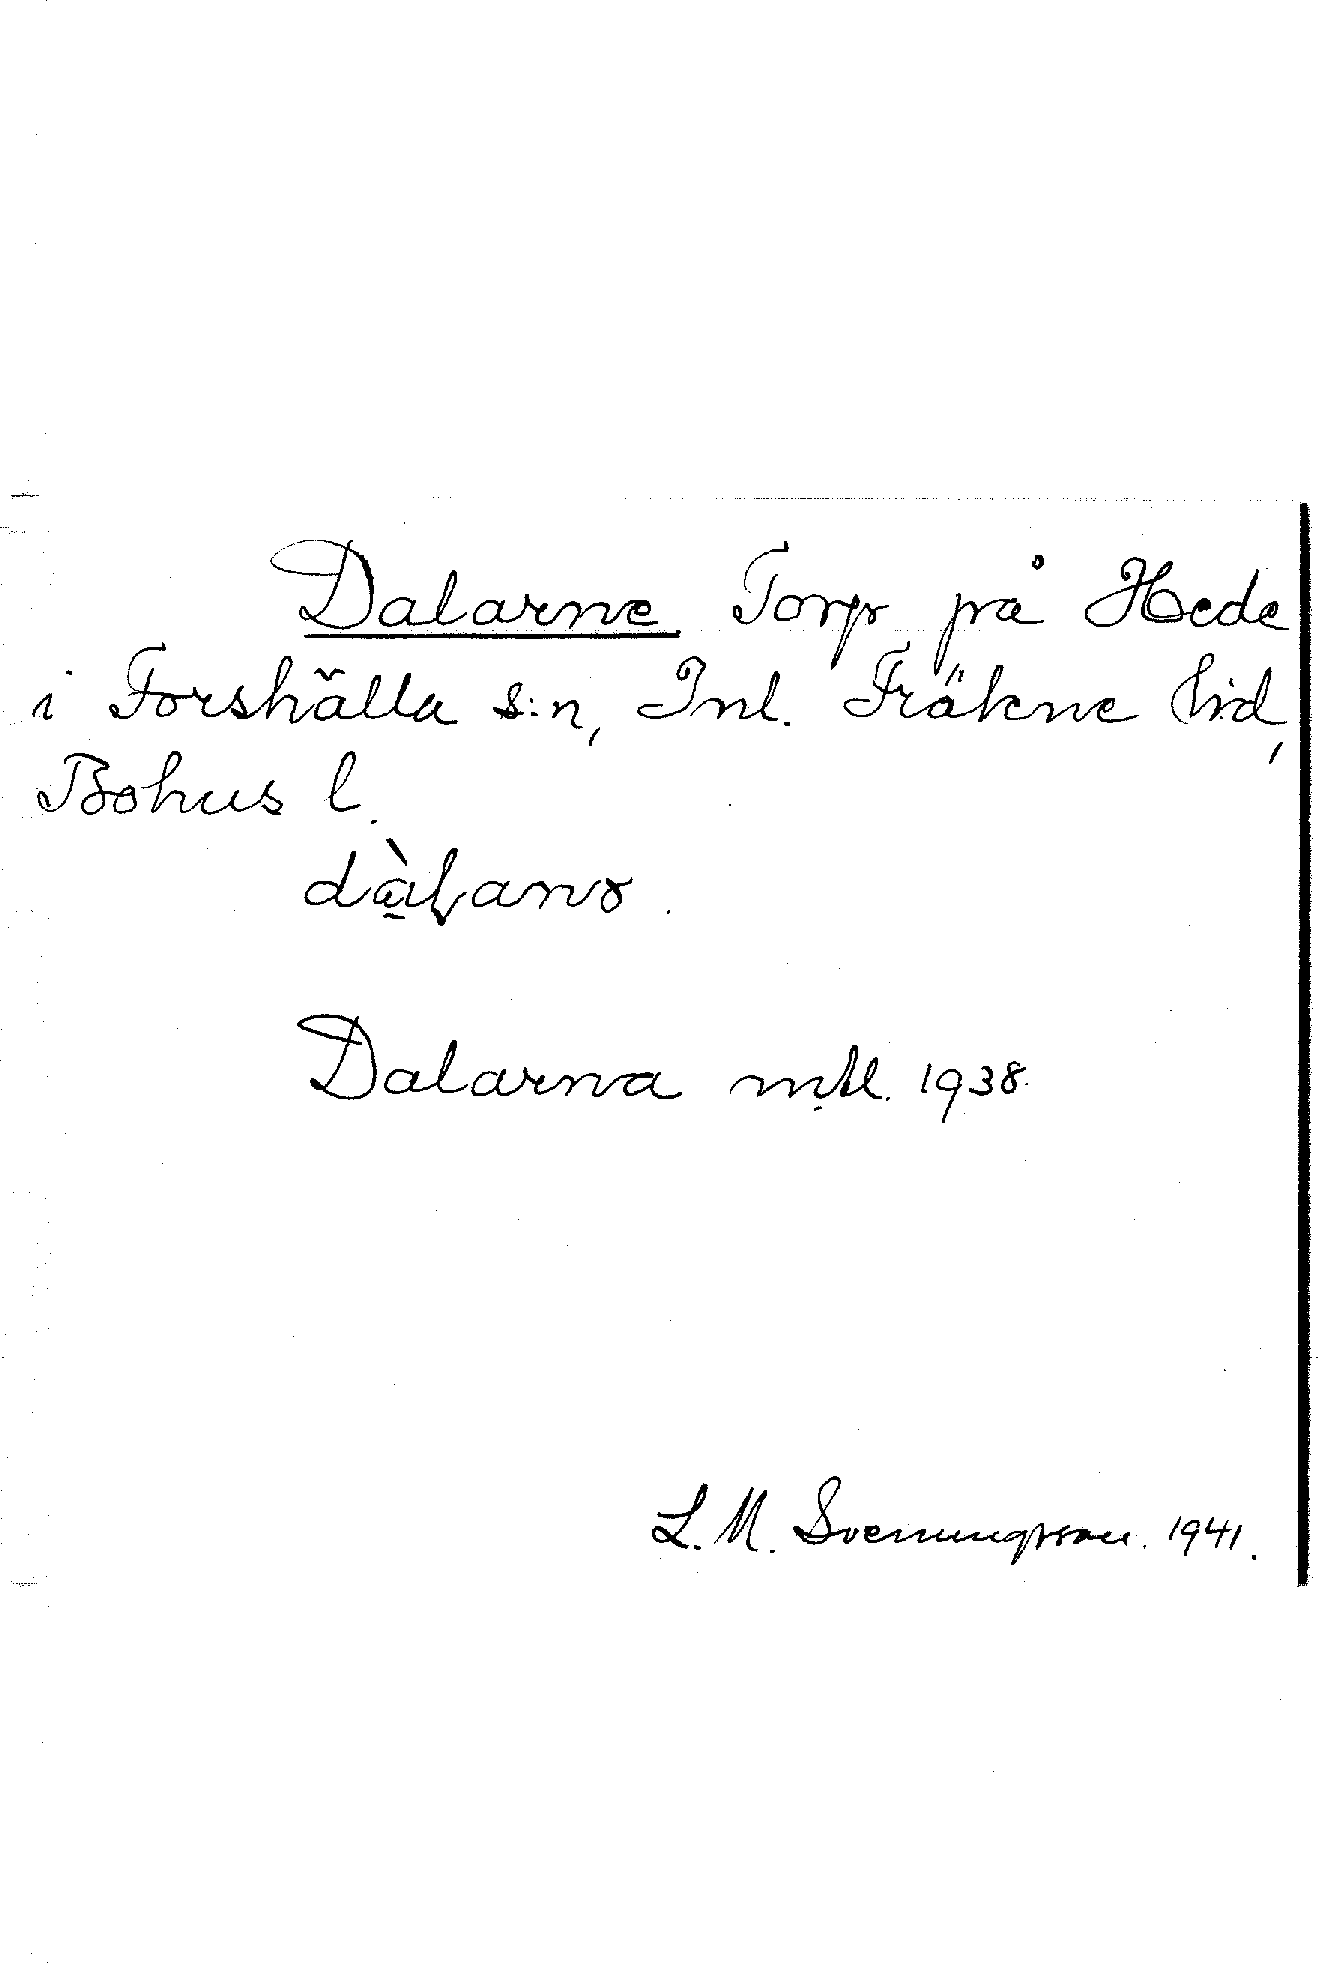 Dalarne Torp på Hede
i Forshälla s:n, Inl. Fräkne hd,
Bohus l.
dàlanɤ.
Dalarna mtl. 1938.
L. M. Svenungsson. 1941.